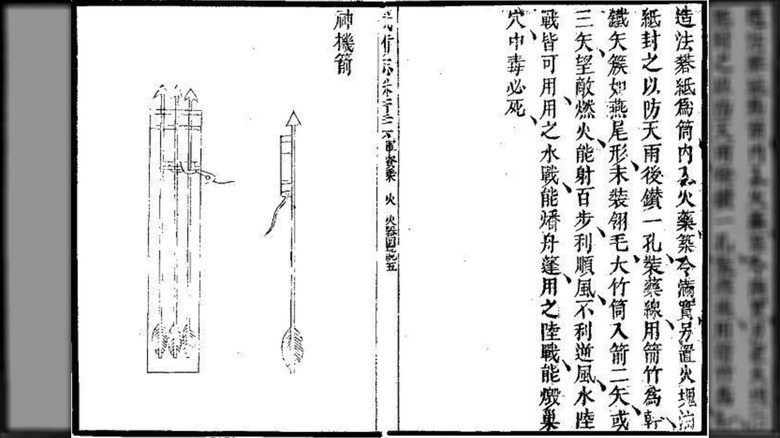 造法礬紙爲筒內入火藥築令滿實另置火塊油
紙封之以防天雨後鑚一孔裝藥線用箭竹爲幹
鐵矢簇如燕尾形末裝翎毛大竹筒入箭二矢或
三矢望敵燃火能射百步利順風不利逆風水陸
戰皆可用用之水戰能燔舟蓬用之陸戰能燬巢
穴中毒必死
軍資乘 火 火器圖說五
神機箭